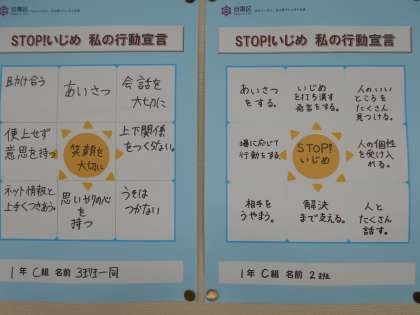 台東区
STOP!いじめ 私の行動宣言
助け合う
あいさつ
会話を
大切に
便乗せず
意思を持つ
笑顔を
大切に
上下関係
をつくらない。
ネット情報と
上手くつきあう。
思いやりの心
を
持つ
うそは
つかない
1年 C組 名前 3班一同
台東区
STOP!いじめ 私の行動宣言
あいさつ
をする。
いじめ
を打ち消す
発言をする。
人のいい
ところを
たくさん
見つける。
場に応じて
行動をする。
STOP!
いじめ
人の個性
を受け入
れる。
相手を
うやまう。
解決
まで支える。
人と
たくさん
話す。
1年 C組 名前 2班